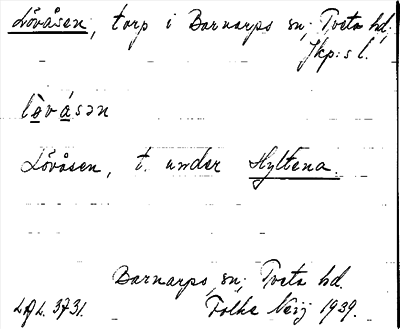 Lövåsen, torp i Barnarps sn, Tveta hd,
Jkp:s l.
lövåsən
Lövåsen, t. under Hyltena.
Barnarps sn, Tveta hd.
Folke Neij 1939.